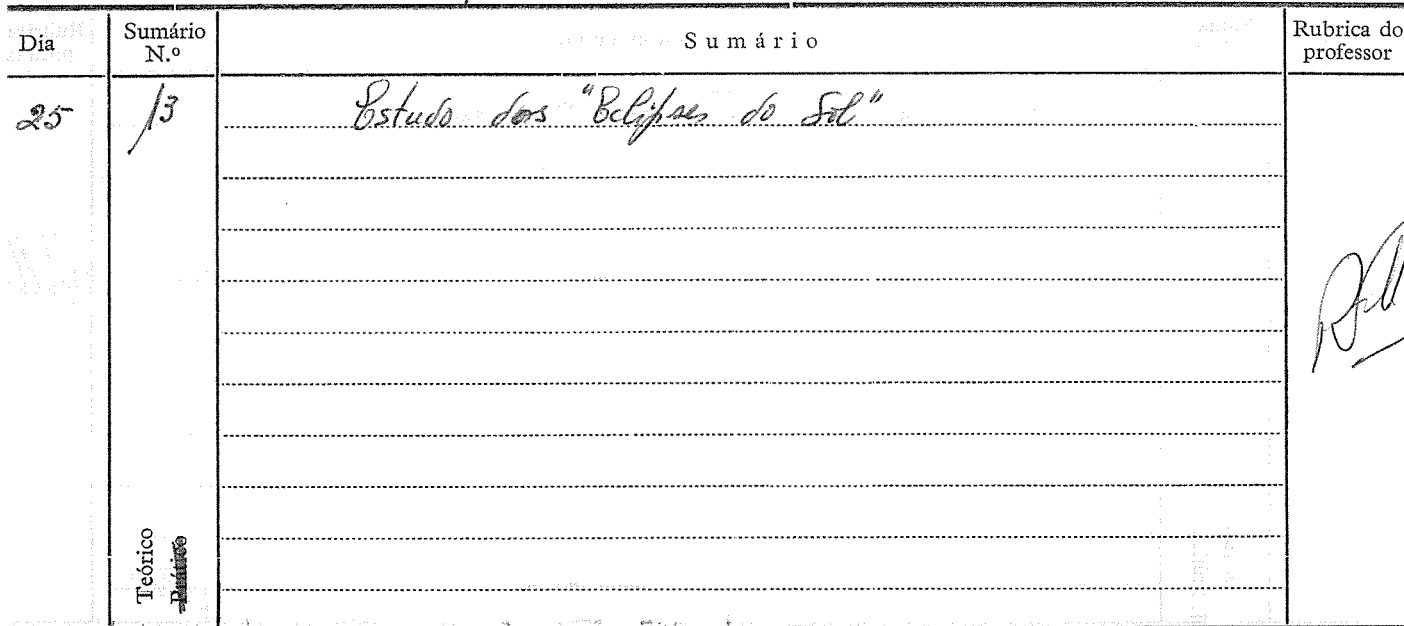 Dia Sumário N.º Sumário Rubrica do professor
25 13 Estudo dos "Eclipses do Sol"
Teórico
Prático